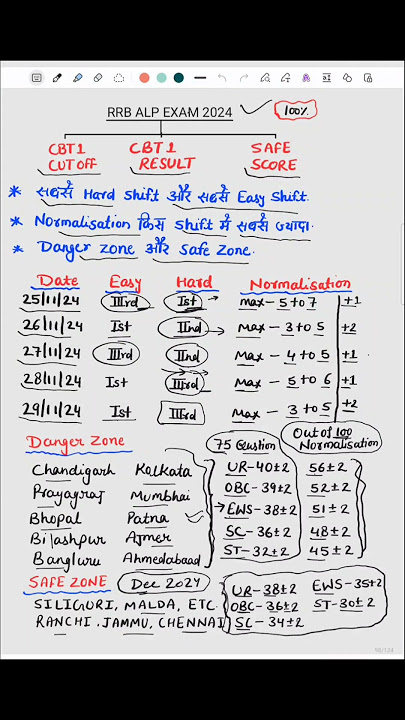 RRB ALP EXAM 2024 100%
CBT1 CUTOFF
CBT1 RESULT
SAFE SCORE
* सबसे Hard Shift और सबसे Easy Shift.
* Normalisation किस Shift में सबसे ज्यादा.
* Danger zone और Safe Zone.
Date Easy Hard Normalisation
25/11/24 IIIrd Ist → max - 5 to 7 +1
26/11/24 Ist IInd → max - 3 to 5 +2
27/11/24 IIIrd IInd max - 4 to 5 +1
28/11/24 Ist IIIrd max - 5 to 6 +1
29/11/24 Ist IIIrd max - 3 to 5 +2
Danger Zone 75 Qustion Out of 100 Normalisation
Chandigarh Kolkata UR-40±2 56±2
Prayagraj Mumbhai OBC-39±2 52±2
Bhopal Patna → EWS-38±2 51±2
Bilashpur Ajmer SC-36±2 48±2
Bangluru Ahmedabaad ST-32±2 45±2
SAFE ZONE Dec 2024 UR-38±2 EWS-35±2
SILIGURI, MALDA, ETC. OBC-36±2 ST-30±2
RANCHI, JAMMU, CHENNAI SC-34±2
98/124